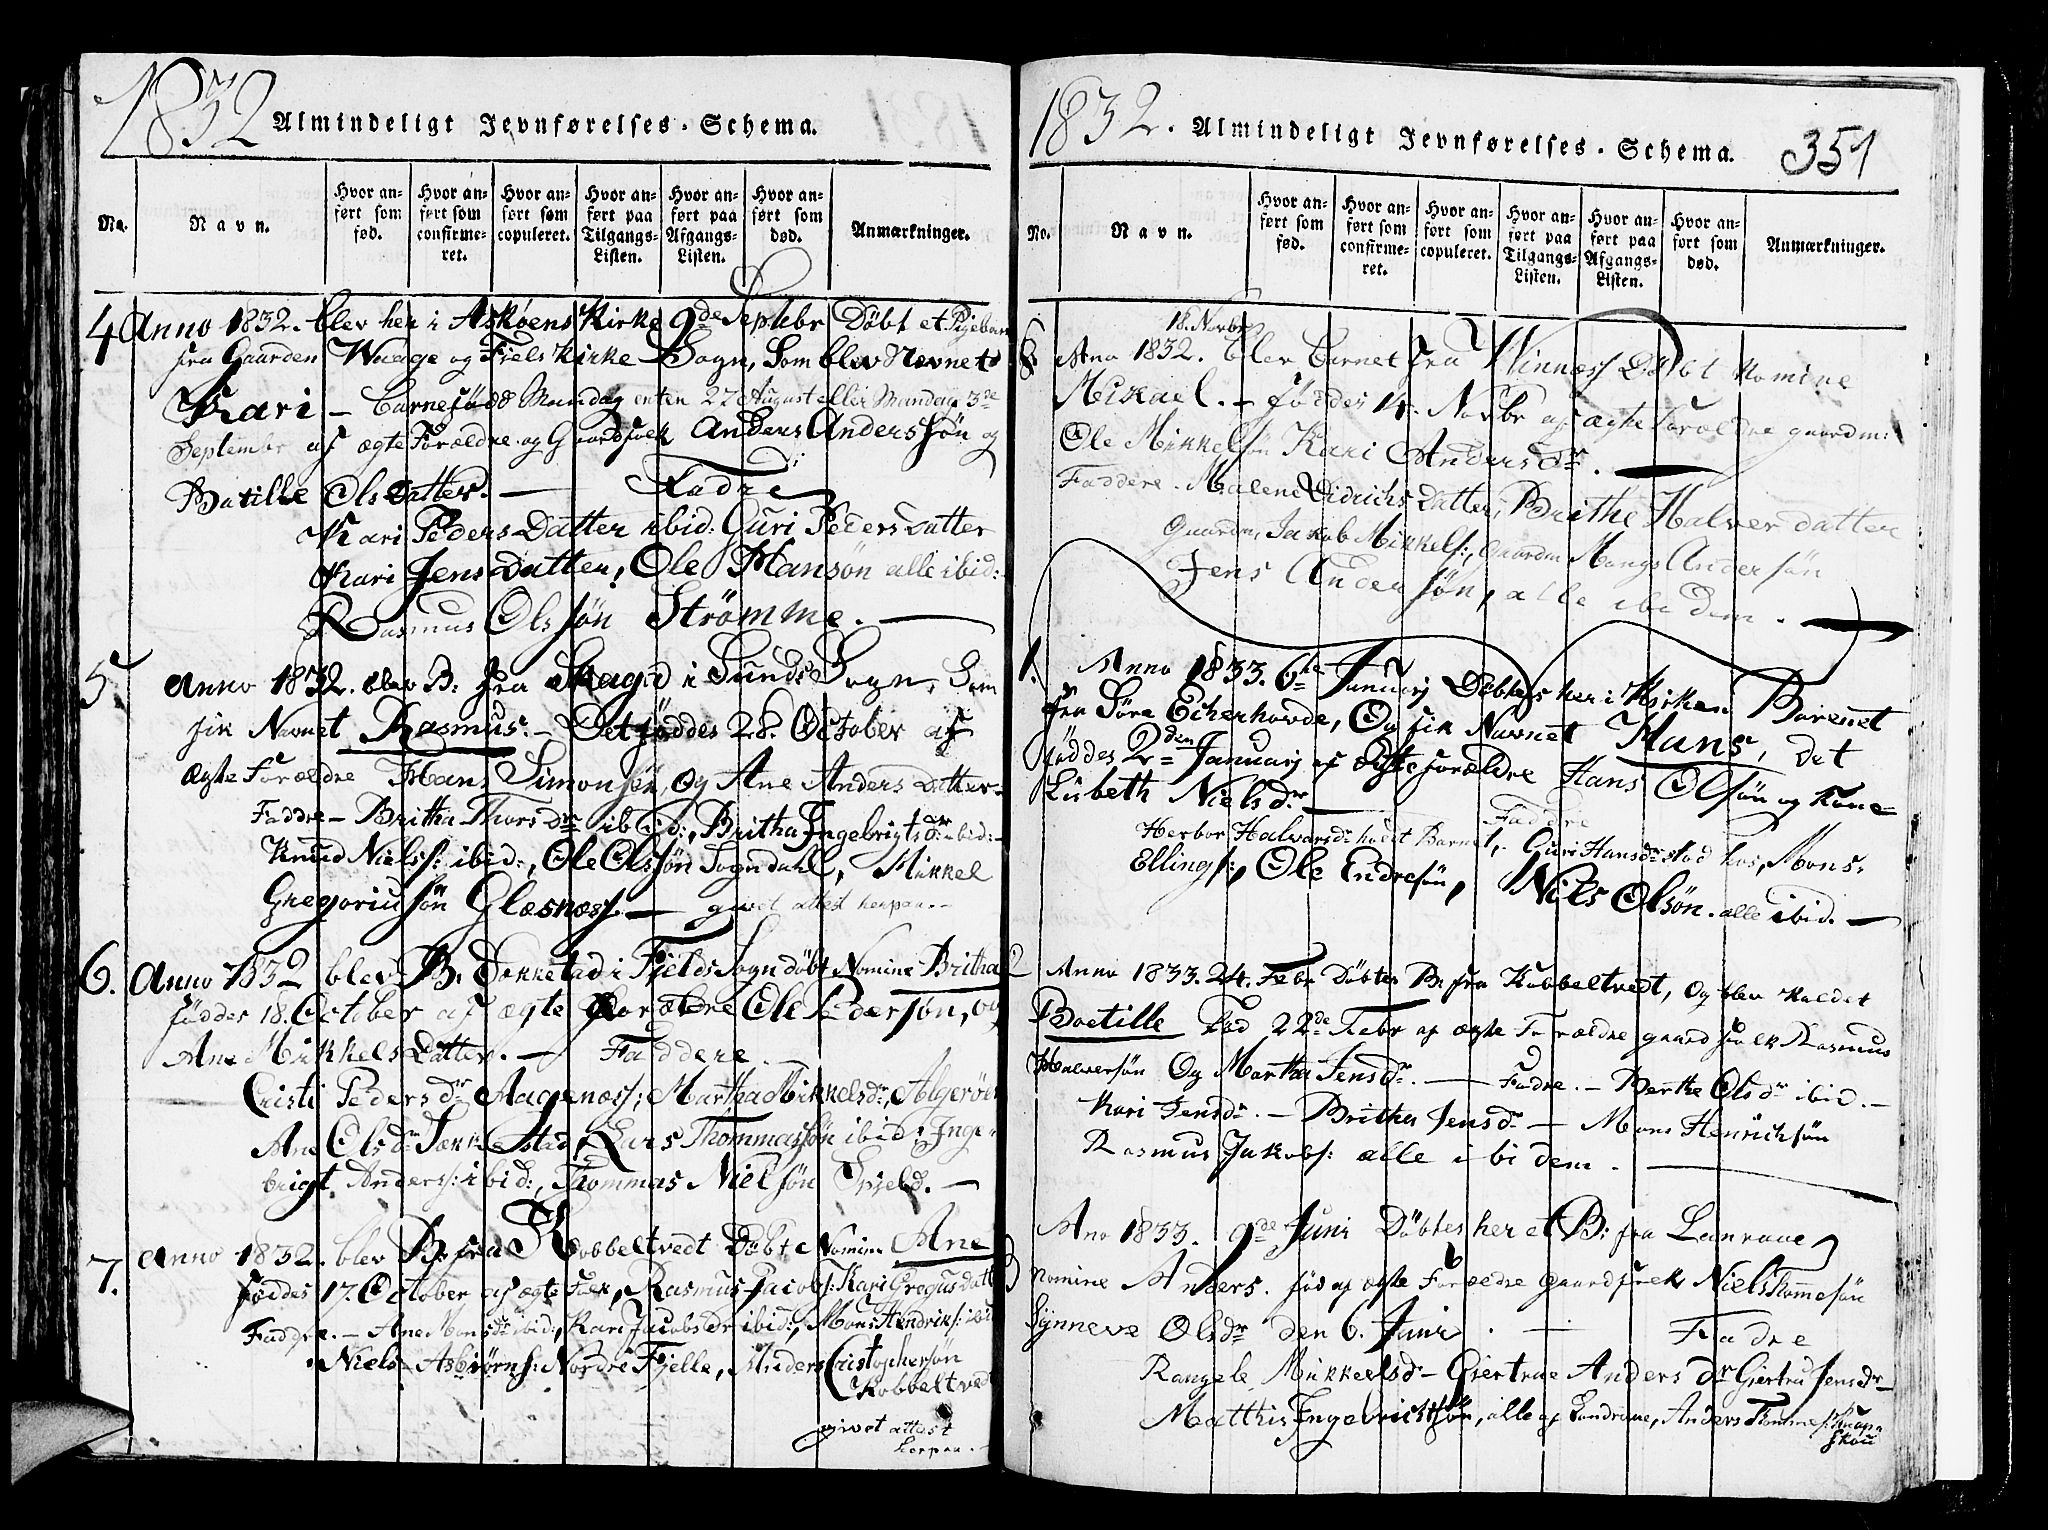 1832 Almindeligt Jevnførelses-Schema.
No. Navn. Hvor anført som fød. Hvor anført som confirmeret. Hvor anført som copuleret. Hvor anført paa Tilgangs-Listen. Hvor anført paa Afgangs-Listen. Hvor anført som død. Anmærkninger.
4 Anno 1832. blev her i Askøens Kirke 9de Septbr Døbt et Pigebarn
fra Gaarden Waage og Fiels Kirke Sogn, Som blev Nevnet
Kari – Barne fødd Mandag enten 27 August eller Mandag 3de
September af ægte Forældre og Gaardfolk Anders Anderssøn og
Batille OlsDatter. — Fadre
Kari PedersDatter ibid: Guri PedersDatter
Kari JensDatter, Ole Hansøn alle ibid:
Rasmus Olssøn Strømme. —
5. Anno 1832. blev B: fra Skaga i Sunds Sogn, Som
fik Navnet Rasmus. – Det føddes 28. October af
ægte Forældre Hans Simonsøn, Og Ane AndersDatter
Faddre – Britha Thorsdr ibid:, Britha Ingebrigtsdr ibid: –
Knud Nielss: ibid:, Ole Olssøn Sogndahl, Mikkel
Gregoriusøn Glesnæss. — givet attest herpaa. –
6. Anno 1832 blev B. i Fjelds Sogn døbt Nomine Britha
føddes 18. October af ægte Forældre Ole Pedersøn, og
Ane MikkelsDatter. — Faddere. –
Cristi Pedersdr Aagenæss; Martha Mikkelsdr, Algerøen
Ane Olsdr, Lars Thommassøn ibid: Inge-
brigt Anderss: ibid:, Thommas Nielsøn Spjeld. –
7. Anno 1832. blev B: fra Kobbeltvedt Døbt Nomine Ane
føddes 17. October af ægte Folk, Rasmus Jacobs: Kari Gregusdatt
Faddre. – Ane Monsdr ibid:, Kari Jacobsdr ibid:, Mons Hendriks: ibid
Niels Asbiørns: Nordre Fjelle, Anders Cristophersøn
Kobbeltved
givet attest
herpaa. –
1832. Almindeligt Jevnførelses-Schema. 351
No. Navn. Hvor anført som fød. Hvor anført som confirmeret. Hvor anført som copuleret. Hvor anført paa Tilgangs-Listen. Hvor anført paa Afgangs-Listen. Hvor anført som død. Anmærkninger.
18. Novbr
8 Ano 1832. blev Barnet fra Winnæss Døbt Nomine
Mikael. – føddes 14. Novbr af ægte Forældre gaardm:
Ole Mikkelsøn Kari Andersdr. —
Faddere. Malene DidrichsDatter, Brithe Halverdatter
Gaardm, Jakob Mikkels:, Gaardm Mongs Andersøn
Jens Andersøn, alle ibidem. —
1. Anno 1833. 6te Januarj Døbtes her i Kirken Barnet
fra Søre Echerhovde, Og fik Navnet Hans, det
føddes 2den Januarj af Ægteforældre Hans Olsøn og Kone
Lisbeth Nielsdr — Faddre
Herbor Halvarsdr holdt Barnet, Guri Hansdr stod hos, Mons
Ellings:, Ole Endresøn, Niels Olsøn. alle ibid. —
2 Anno 1833. 24. Febr Døbtes B: fra Kobbeltvedt, Og blev kaldet
Boetille Fød 22de Febr af ægte Forældre gaardfolk Rasmus
Halversøn Og Martha Jensdr. — Fadre. – Berthe Olsdr ibid. –
Kari Jensdr. – Britha Jensdr – Mons Henrichsøn
Rasmus Jakobs: alle ibidem. —
3 Ano 1833. 9de Juni Døbtes her et B: fra
Nomine Anders. fød af ægte Forældre Gaardfolk Niels Tommesøn
Synneve Olsdr den 6. Juni. — Fadre
Rangele Mikkelsd – Giertrue Andersdr Giertru Jensdr –
Matthis Ingebrichtsøn, alle af, Anders Tommes: Knap-
skou